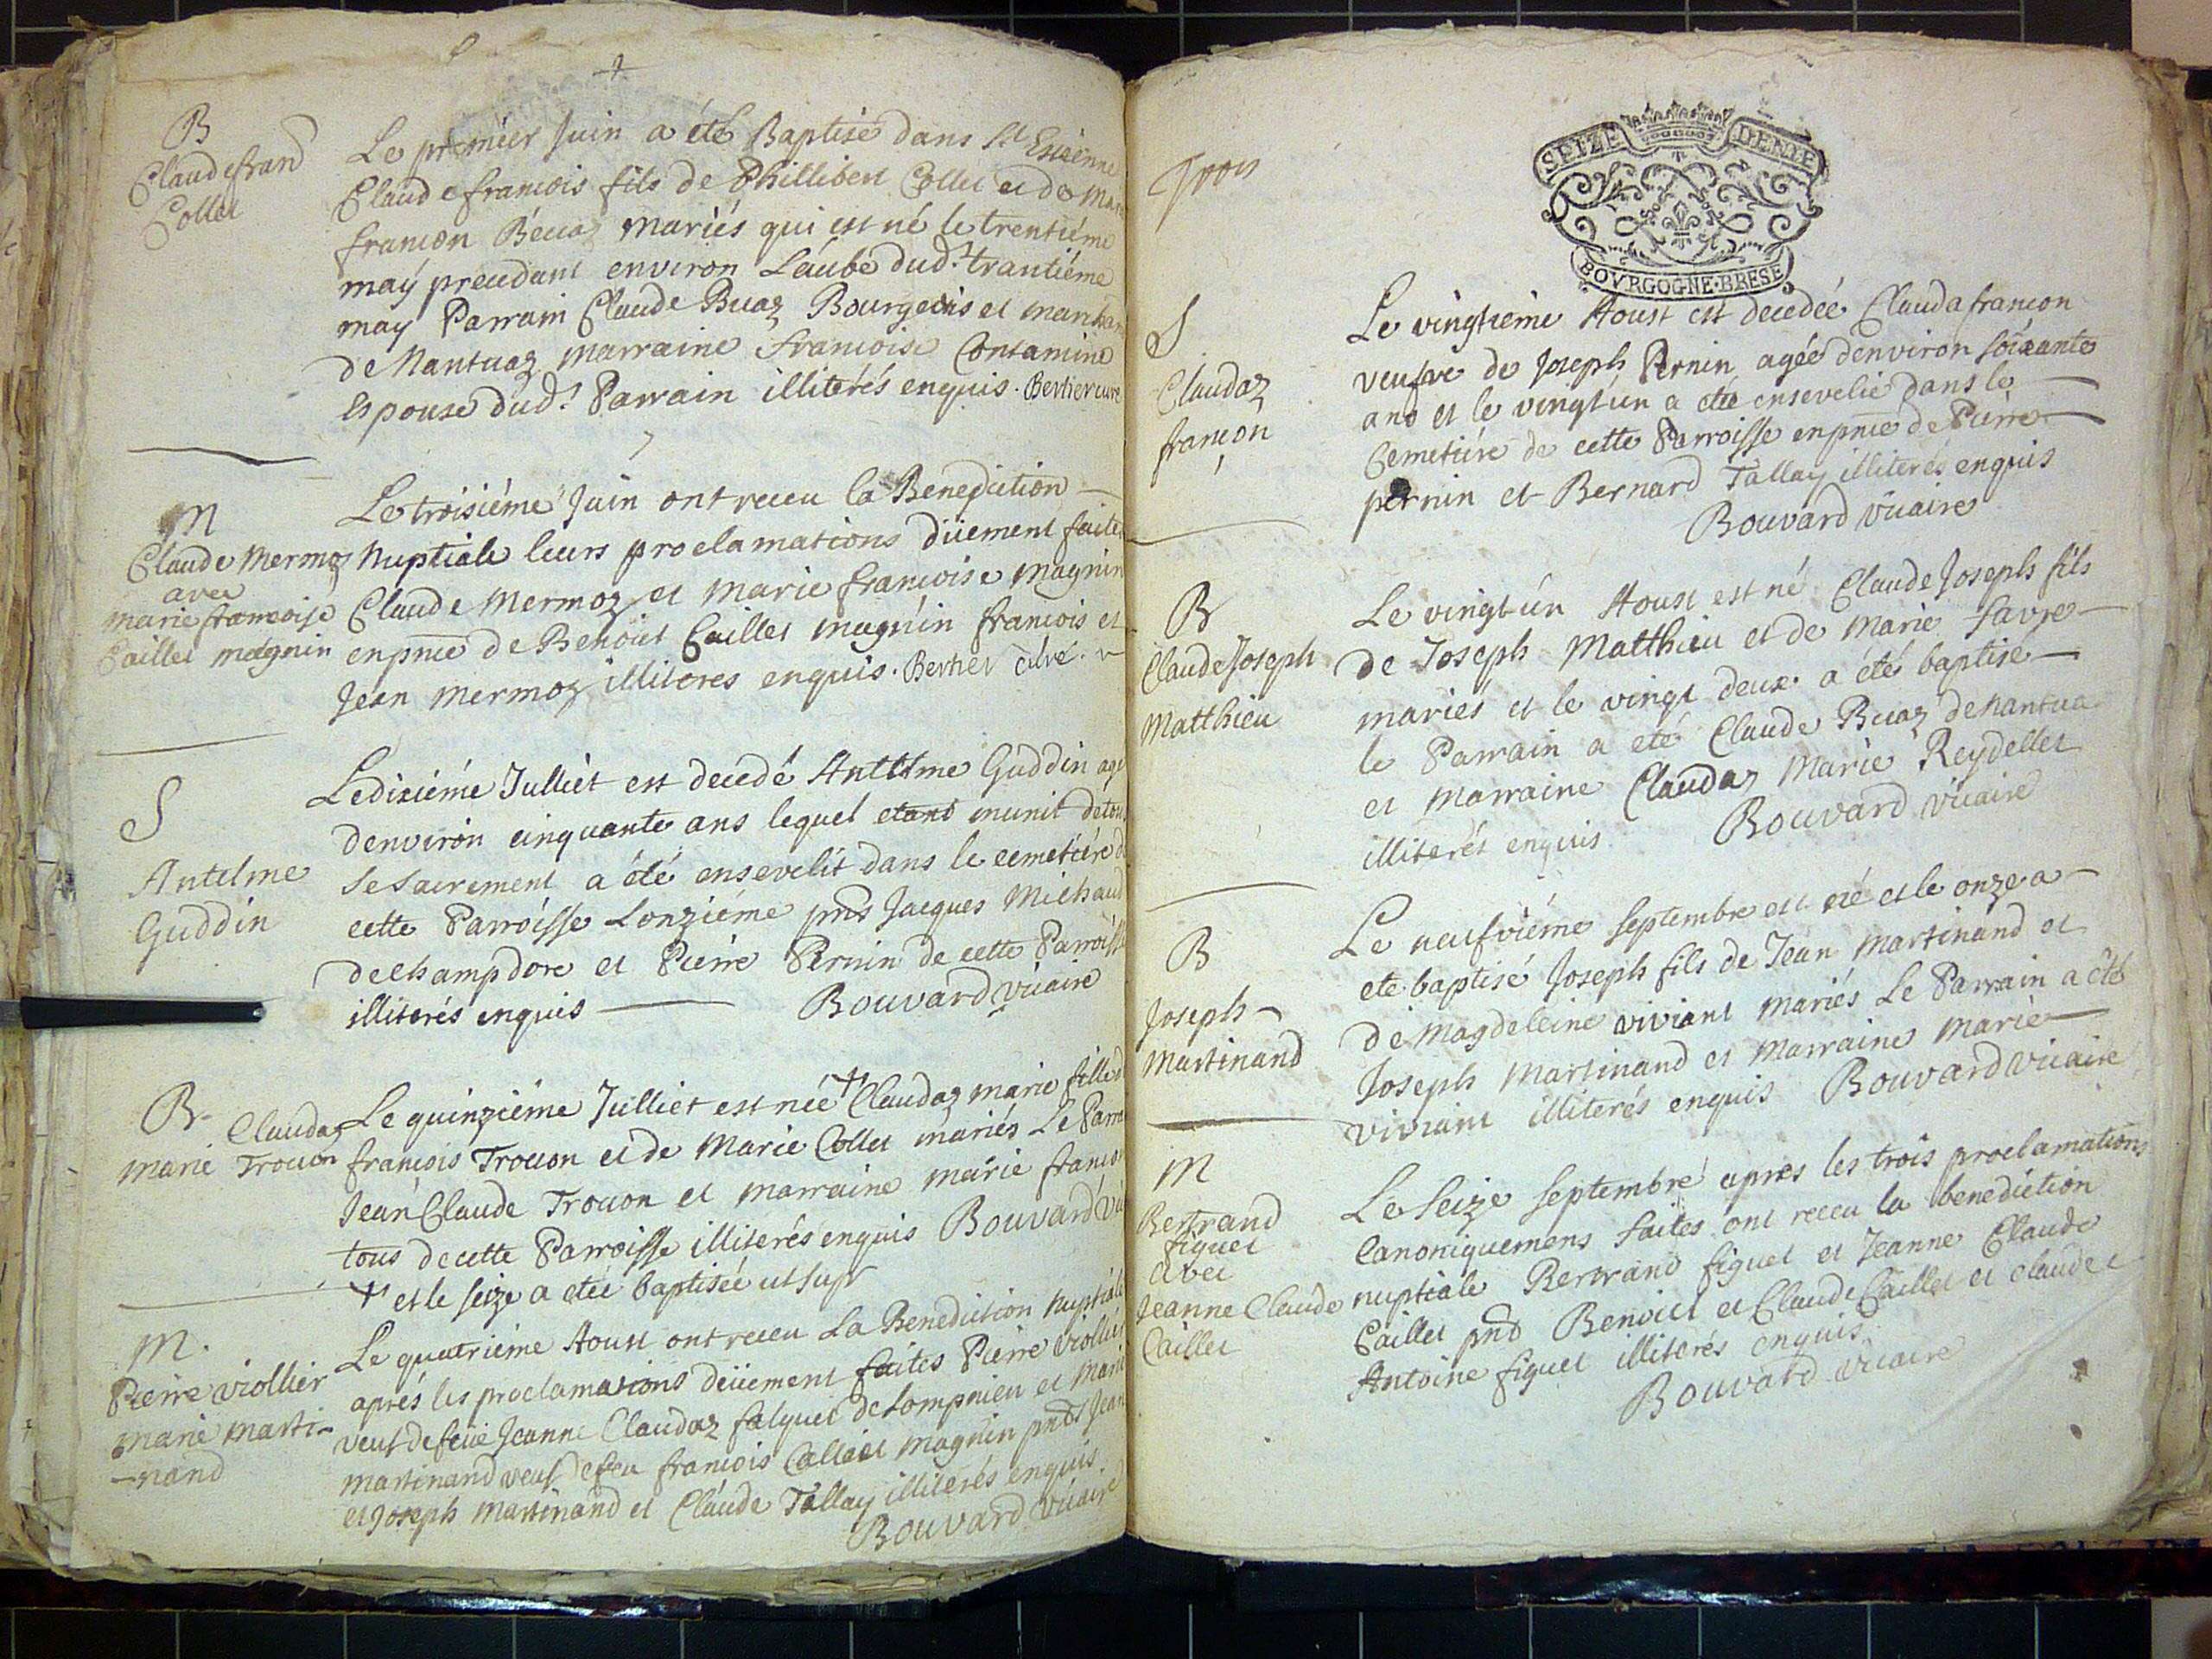 B
Claudefrand
Collet
Le premier Juin a été Baptisé dans St Estienne
Claude francois fils de Phillibert Collet et de Marie
francon Béccaz mariés qui est né le trentiéme
may precedant environ L'aube dud.t trantiéme
may Parrain Claude Buaz Bourgeois et marchan
de Nantuaz marraine francoise Contamine
Espouse dud.t Parrain illiterés enquis. Bertier curé
M
Claude Mermoz
avec
marie francoise
Caillet magnin
Le troisiéme Juin ont receu la Benediction
Nuptiale leurs proclamations düement faites
Claude Mermoz et marie francoise magnin
enpnce de Benoict Caillet magnin francois et
Jean mermoz illiteres enquis. Bertier curé.
S
Antelme
Guddin
Le dixiéme Julliet est decedé Anthelme Guddin agé
denviron cinquante ans lequel etant munit de tous
se sacrement a été ensevelit dans le cemetiére de
cette Parroisse Lonziéme pnts Jacques Michaud
de champdore et Pierre Pernin de cette Parroisse
illiterés enquis Bouvard vicaire
B.
Claudaz
marie Trocon
Le quinziéme Julliet est née + Claudaz marie fille d
francois Trocon et de Marie Collet mariés Le Parra
Jean Claude Trocon et marraine marie francon
tous de cette Parroisse illiterés enquis Bouvard vi
+ et le seize a eteé baptisée ut supr
M.
Pierre viollier
marie marti-
-nand
Le quatriéme Aoust ont receu La Benediction nuptiale
aprés les proclamations deüement faites Pierre viollier
veuf de feüe Jeanne Claudaz falquet de Lompnieu et Marie
martinand veuf defeu francois Calliet magnin pnts Jean
et Joseph martinand et Claude Tallay illiterés enquis.
Bouvard vicaire
Trois
SEIZE DENIE
BOVRGOGNE·BRESE
S
Claudaz
francon
Le vingtiéme Aoust est decedée Clauda francon
veufve de Joseph Pernin agée denviron soixante
ans et le vingtún a eté ensevelie dans le
Cemetiére de cette Parroisse enpnce de Pierre
pernin et Bernard Tallay illiterés enquis
Bouvard vicaire
B
Claude Joseph
Matthieu
Le vingtún Aoust est né Claude Joseph fils
de Joseph Matthieu et de marie favre
mariés et le vingt deux a été baptisé
le Parrain a eté Claude Buaz de nantua
et marraine Claudaz Marie Reydellet
illiterés enquis Bouvard vicaire
B
Joseph
Martinand
Le neufviéme septembre est né et le onze a
ete baptisé Joseph fils de Jean martinand et
de Magdeleine viviant mariés Le Parrain a été
Joseph martinand et marraine marie
viviant illiterés enquis Bouvard vicaire
M
Bertrand
figuet
avec
Jeanne Claude
Caillet
Le seize septembre apres les trois proclamations
Canoniquemens faites ont receu la benediction
nuptiale Bertrand figuet et Jeanne Claude
Caillet pnts Benoict et Claude Caillet et claude e
Antoine figuet illiterés enquis.
Bouvard vicaire